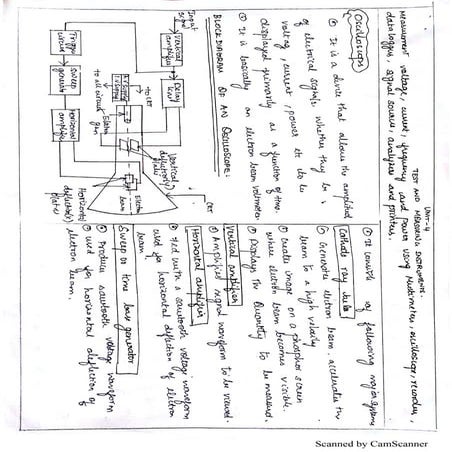 UNIT-4
TEST AND MEASURING INSTRUMENTS.
Measurement voltage, current, frequency and power using Multimeter, oscilloscope, recorder,
datalogger, signal source, analyzers and printers.
Oscilloscope
It is a device that allows the amplitude
of electrical signals whether they be
voltage, current, power etc to be
displayed primarily as a function of time.
It is basically an electron beam voltmeter
BLOCK DIAGRAM OF AN OSCILLOSCOPE:
Input
signal
Vertical
amplifier
Delay
line
Trigger
circuit
sweep
generator
Horizontal
amplifier
to CRT
to all circuit
Electron
gun
Vertical
deflection
Plates
Horizontal
deflection
Plates
electron
beam
CRT
It consists of following major systems
Cathode ray tube
Generates electron beam, accelerate the
beam to a high velocity
create image on a phosphor screen
where electron beam becomes visible.
Displays the Quantity to be measured.
Vertical amplifier
Amplifies signal waveform to be viewed.
Horizontal amplifier
Fed with a sawtooth voltage waveform
used for horizontal deflection of electron
beam.
Sweep or time base generator
Produce sawtooth voltage waveform
used for horizontal deflection of
electron beam.
Scanned by CamScanner